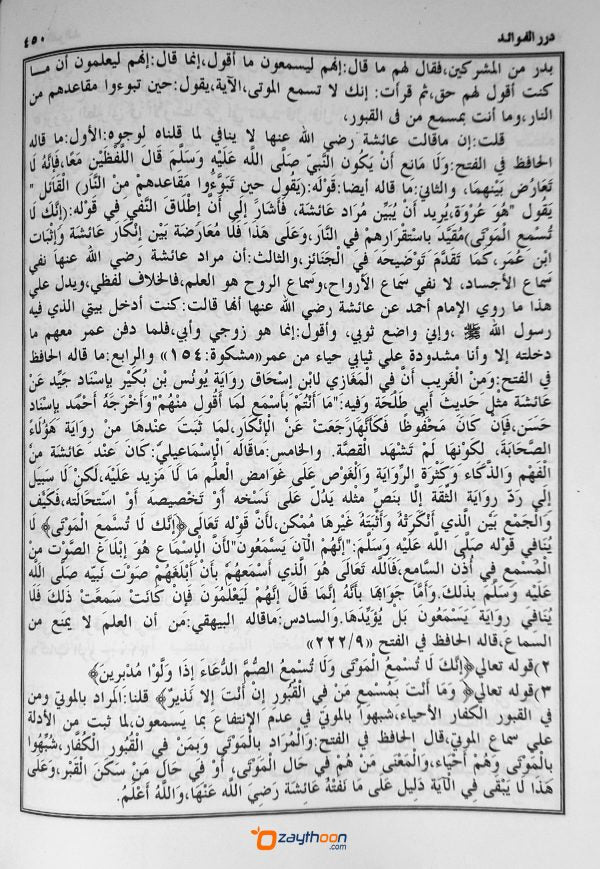 درر الفوائد
٤٥٠
بدر من المشركين،فقال لهم ما قال:إنهم ليسمعون ما أقول،إنما قال:إنهم ليعلمون أن مـــا
كنت أقول لهم حق،ثم قرأت: إنك لا تسمع الموتى،الآية،يقول:حين تبوءوا مقاعدهم من
النار،وما أنت بمسمع من فى القبور،
قلت: إن ماقالت عائشة رضي الله عنها لا ينافي لما قلناه لوجوه:الأول:ما قاله
الحافظ في الفتح:وَلَا مَانِع أَنْ يَكُون النَّبِيّ صَلَّى اللَّه عَلَيْهِ وَسَلَّمَ قَالَ اللَّفْظَيْنِ مَعًا،فَإِنَّهُ لَا
تَعَارُض بَيْنهمَا، والثاني:ما قاله أيضا:قَوْلُه:(يَقُول حِين تَبَوَّءُوا مَقَاعِدهمْ مِنْ النَّار) الْقَائِل "
يَقُول "هُوَ عُرْوَة،يُرِيد أَنْ يُبَيِّن مُرَاد عَائِشَة، فَأَشَارَ إِلَى أَنَّ إِطْلَاق النَّفْي فِي قَوْله:(إِنَّك لَا
تُسْمِع الْمَوْتَى)مُقَيَّد بِاسْتِقْرَارِهِمْ فِي النَّار،وَعَلَى هَذَا فَلَا مُعَارَضَة بَيْن إِنْكَار عَائِشَة وَإِثْبَات
ابْن عُمَر،كَمَا تَقَدَّمَ تَوْضِيحه فِي الْجَنَائِز،والثالث:أن مراد عائشة رضي الله عنها نفي
سماع الأجساد، لا نفي سماع الأرواح،وسماع الروح هو العلم،فالخلاف لفظي،ويدل علي
هذا ما روي الإمام أحمد عن عائشة رضي الله عنها أنها قالت:كنت أدخل بيتي الذي فيه
رسول الله ﷺ ،وإني واضع ثوبي، وأقول:إنما هو زوجي وأبي،فلما دفن عمر معهم ما
دخلته إلا وأنا مشدودة علي ثيابي حياء من عمر«مشكوة:١٥٤» والرابع:ما قاله الحافظ
في الفتح:وَمِنْ الْغَرِيب أَنَّ فِي الْمَغَازِي لِابْنِ إِسْحَاق رِوَايَة يُونُس بْن بُكَيْر بِإِسْنَادٍ جَيِّد عَنْ
عَائِشَة مِثْل حَدِيث أَبِي طَلْحَة وَفِيه:"مَا أَنْتُمْ بِأَسْمَع لِمَا أَقُول مِنْهُمْ"وَأَخْرَجَهُ أَحْمَد بِإِسْنَادٍ
حَسَن،فَإِنْ كَانَ مَحْفُوظًا فَكَأَنَّهَارَجَعَتْ عَنْ الْإِنْكَار،لِمَا ثَبَتَ عِنْدهَا مِنْ رِوَايَة هَؤُلَاءِ
الصَّحَابَة، لِكَوْنِهَا لَمْ تَشْهَد الْقِصَّة. والخامس:ماقاله الْإِسْمَاعِيلِيّ:كَانَ عِنْد عَائِشَة مِنْ
الْفَهْم وَالذَّكَاء وَكَثْرَة الرِّوَايَة وَالْغَوْص عَلَى غَوَامِض الْعِلْم مَا لَا مَزِيد عَلَيْهِ،لَكِنْ لَا سَبِيل
إِلَى رَدّ رِوَايَة الثِّقَة إِلَّا بِنَصٍّ مِثْله يَدُلّ عَلَى نَسْخه أَوْ تَخْصِيصه أَوْ اسْتِحَالَته،فَكَيْف
وَالْجَمْع بَيْن الَّذِي أَنْكَرَتْهُ وَأَثْبَتَهُ غَيْرهَا مُمْكِن،لِأَنَّ قَوْله تَعَالَى﴿إِنَّك لَا تُسْمِع الْمَوْتَى﴾ لَا
يُنَافِي قَوْله صَلَّى اللَّه عَلَيْهِ وَسَلَّمَ:"إِنَّهُمْ الْآن يَسْمَعُونَ"لِأَنَّ الْإِسْمَاع هُوَ إِبْلَاغ الصَّوْت مِنْ
الْمُسْمِع فِي أُذُن السَّامِع،فَاللَّه تَعَالَى هُوَ الَّذِي أَسْمَعَهُمْ بِأَنْ أَبْلَغَهُمْ صَوْت نَبِيّه صَلَّى اللَّه
عَلَيْهِ وَسَلَّمَ بِذَلِكَ.وَأَمَّا جَوَابهَا بِأَنَّهُ إِنَّمَا قَالَ إِنَّهُمْ لَيَعْلَمُونَ فَإِنْ كَانَتْ سَمِعَتْ ذَلِكَ فَلَا
يُنَافِي رِوَايَة يَسْمَعُونَ بَلْ يُؤَيِّدهَا. والسادس:ماقاله البيهقي:من أن العلم لا يمنع من
السماع،قاله الحافظ في الفتح "٢٢٢/٩"
٢)قوله تعالي﴿إِنَّكَ لَا تُسْمِعُ الْمَوْتَى وَلَا تُسْمِعُ الصُّمَّ الدُّعَاءَ إِذَا وَلَّوْا مُدْبِرِينَ﴾
٣)قوله تعالي﴿ وَمَا أَنْتَ بِمُسْمِعٍ مَنْ فِي الْقُبُورِ إِنْ أَنْتَ إِلَّا نَذِيرٌ﴾ قلنا:المراد بالموتي ومن
في القبور الكفار الأحياء،شبهوا بالموتي في عدم الإنتفاع بما يسمعون،لما ثبت من الأدلة
علي سماع الموتي،قال الحافظ في الفتح:وَالْمُرَاد بِالْمَوْتَى وَبِمَنْ فِي الْقُبُور الْكُفَّار،شُبِّهُوا
بِالْمَوْتَى وَهُمْ أَحْيَاء،وَالْمَعْنَى مَنْ هُمْ فِي حَال الْمَوْتَى، أَوْ فِي حَال مَنْ سَكَنَ الْقَبْر،وَعَلَى
هَذَا لَا يَبْقَى فِي الْآيَة دَلِيل عَلَى مَا نَفَتْهُ عَائِشَة رَضِيَ اللَّه عَنْهَا،وَاللَّهُ أَعْلَمُ.
Ozaythoon
.com